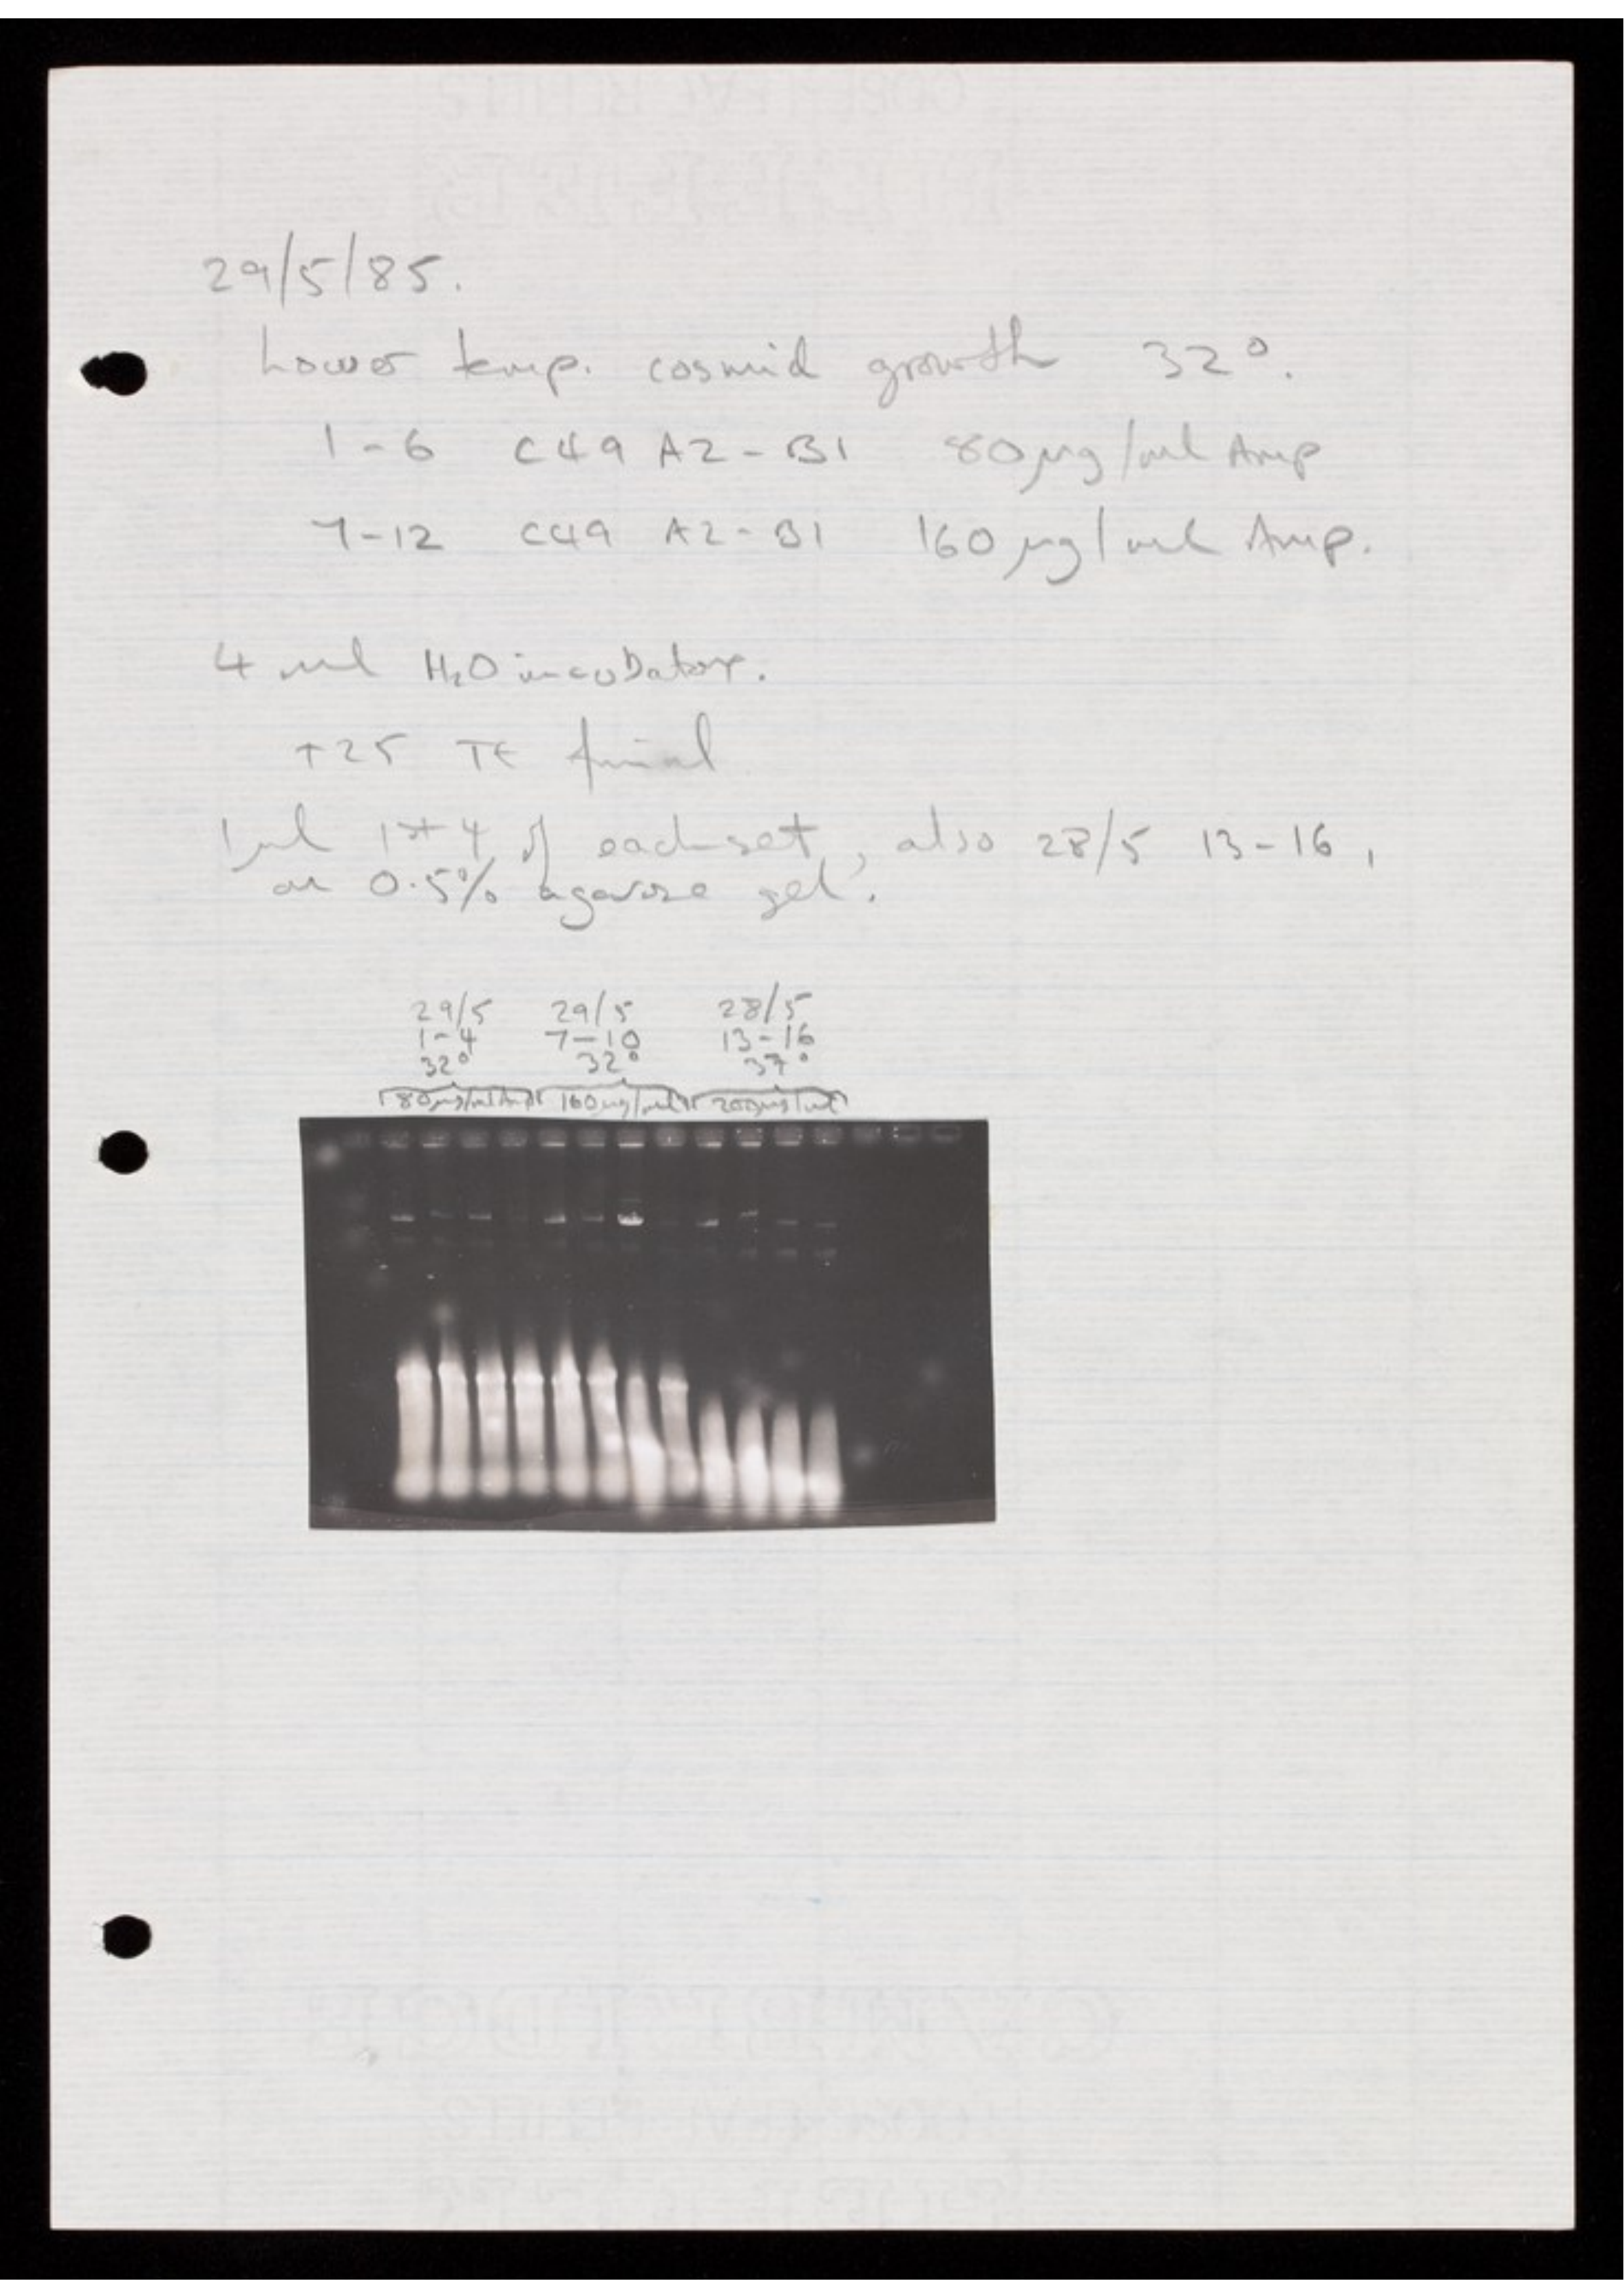 29/5/85.
Lower temp. cosmid growth 32°.
1-6 C49 A2-B1 80μg/ml Amp
7-12 C49 A2-B1 160μg/ml Amp.
4 ml H₂O incubator.
+25 TE final
1μl 1st 4 of each set, also 28/5 13-16,
on 0.5% agarose gel.
29/5 29/5 28/5
1-4 7-10 13-16
32° 32° 37°
80μg/ml Amp 160μg/ml 200μg/ml